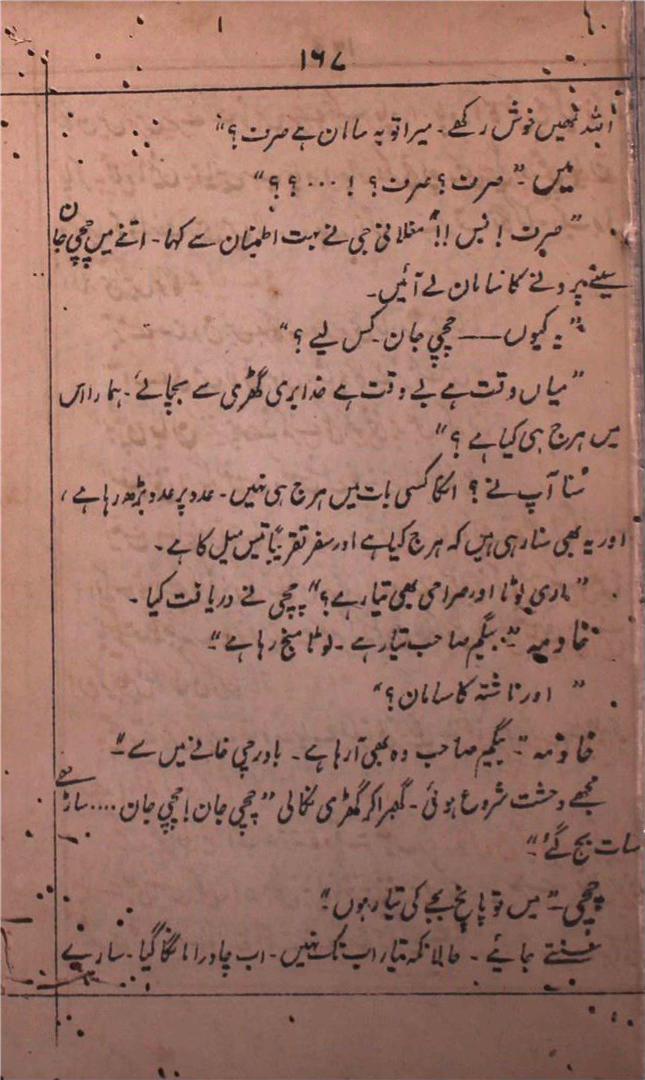 ۱۶۷
اللہ تمھیں خوش رکھے۔ میرا تو یہ سامان ہے صرف؟"
میں "صرف؟ صرف؟ !...؟؟"
"صرف! بس!!" مغلانی جی نے بہت اطمینان سے کہا۔ اتنے میں چچی جان
سینے پرونے کا سامان لے آئیں۔
"یہ کیوں —— چچی جان۔ کس لیے؟"
"میاں وقت ہے بے وقت ہے خدا بری گھڑی سے بچائے۔ ہمارا اس
میں ہرج ہی کیا ہے؟"
سُنا آپ نے؟ انکا کسی بات میں ہرج ہی نہیں۔ عدد پر عدد بڑھ رہا ہے،
اور یہ بھی سنا رہی ہیں کہ ہرج کیا ہے اور سفر تقریباً تیس میل کا ہے۔
"ہماری لوٹا اور صراحی بھی تیار ہے؟" چچی نے دریافت کیا۔
خادمہ "بیگم صاحب تیار ہے۔ لوٹا منج رہا ہے"
"اور ناشتہ کا سامان؟"
خادمہ "بیگم صاحب وہ بھی آ رہا ہے۔ باورچی خانے میں سے"
مجھے وحشت شروع ہوئی۔ گھبرا کر گھڑی نکالی "چچی جان! چچی جان .... ساڑھے
سات بج گئے"
چچی۔ "میں تو پانچ بجے کی تیار ہوں"
سنتے جائیے۔ حالانکہ تیار اب تک نہیں۔ اب چادرا مانگا گیا۔ سارے